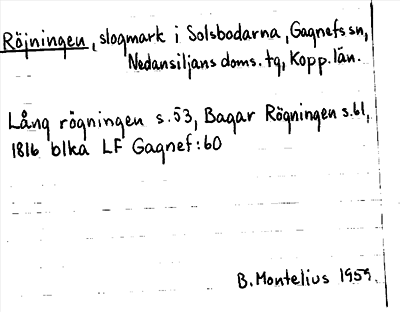 Röjningen, slogmark i Solsbodarna, Gagnefs sn,
Nedansiljans doms. tg, Kopp. län.
Lång rögningen s. 53, Bagar Rögningen s. 61,
1816 blka LF Gagnef: 60
B. Montelius 1959.